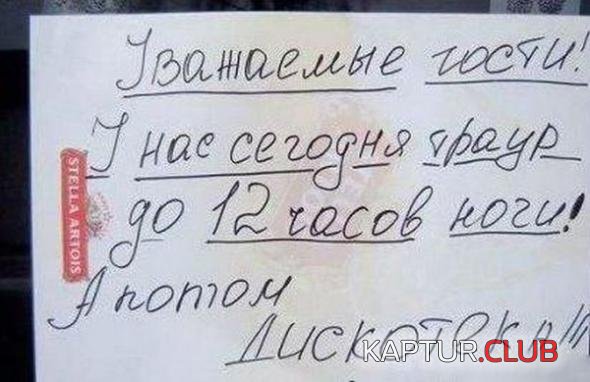 Уважаемые гости!
У нас сегодня траур
до 12 часов ночи!
А потом
ДИСКОТЕКА!!!
STELLA ARTOIS
KAPTUR.CLUB